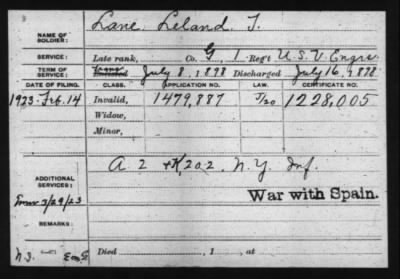 NAME OF SOLDIER: Lane, Leland T.
SERVICE: Late rank, Co. G, 1 Reg't U.S.V. Engrs
TERM OF SERVICE: Enlisted July 8, 1898 Discharged July 16, 1898
DATE OF FILING. CLASS. APPLICATION NO. LAW. CERTIFICATE NO.
1923-Feb.14 Invalid, 1479,887 1,228,005
Widow,
Minor,
ADDITIONAL SERVICES: A 2 + K, 202, N.Y. Inf.
3/29/23 War with Spain.
REMARKS:
Died , 1 , at